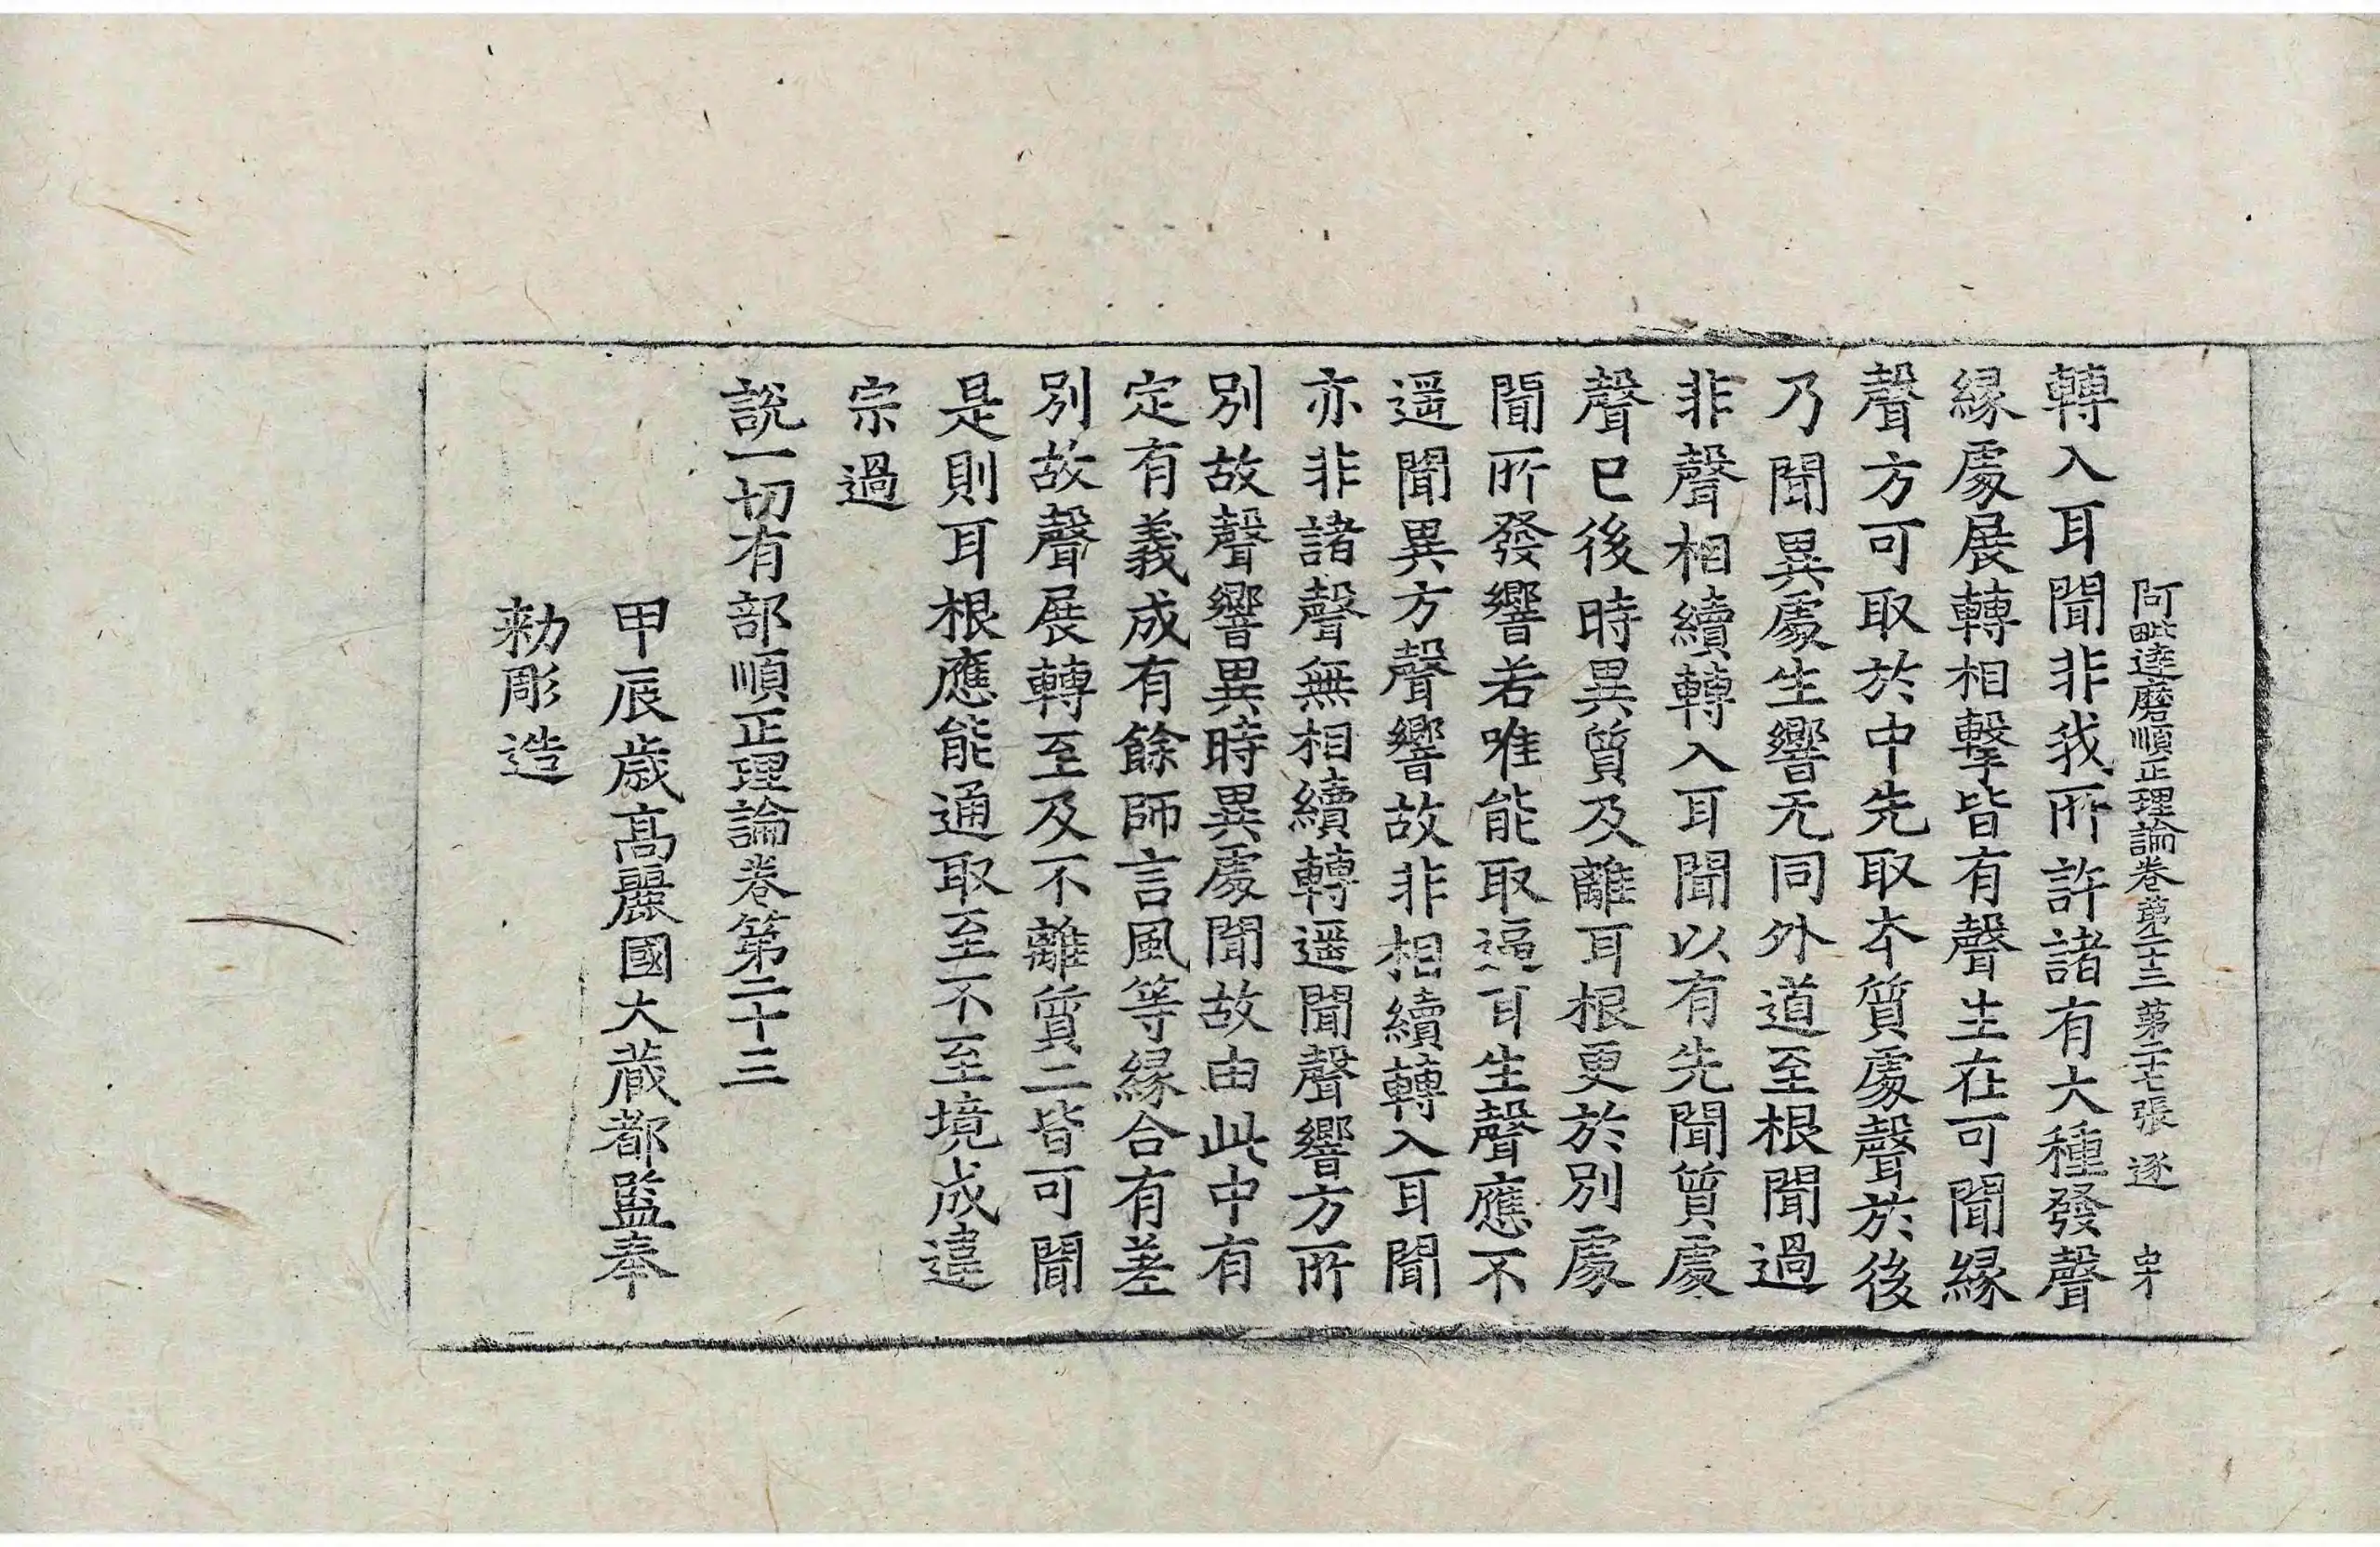 阿毗達磨順正理論卷第二十三 第二十七張 逐
轉入耳聞非我所許諸有大種發聲
緣處展轉相擊皆有聲生在可聞緣
聲方可取於中先取本質處聲於後
乃聞異處生響无同外道至根聞過
非聲相續轉入耳聞以有先聞質處
聲已後時異質及離耳根更於別處
聞所發響若唯能取逼耳生聲應不
遥聞異方聲響故非相續轉入耳聞
亦非諸聲無相續轉遥聞聲響方所
別故聲響異時異處聞故由此中有
定有義成有餘師言風等緣合有差
別故聲展轉至及不離質二皆可聞
是則耳根應能通取至不至境成違
宗過
說一切有部順正理論卷第二十三
甲辰歲高麗國大藏都監奉
勑彫造